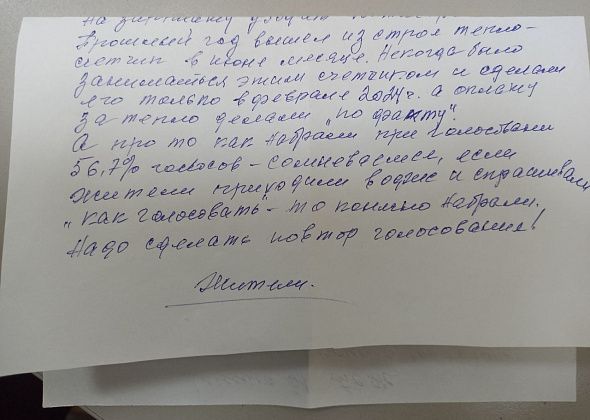 На зарплату уходит
Прошлый год вышел из строя тепло-
счетчик в июне месяце. Некогда было
заниматься этим счетчиком и сделали
его только в феврале 2024г. а оплату
за тепло делали "по факту".
А про то как набрали при голосовании
56,7% голосов - сомневаемся, если
жители приходили в одяю и спрашивали
"как голосовать" - то конечно набрали.
Надо сделать повтор голосования!
Жители.